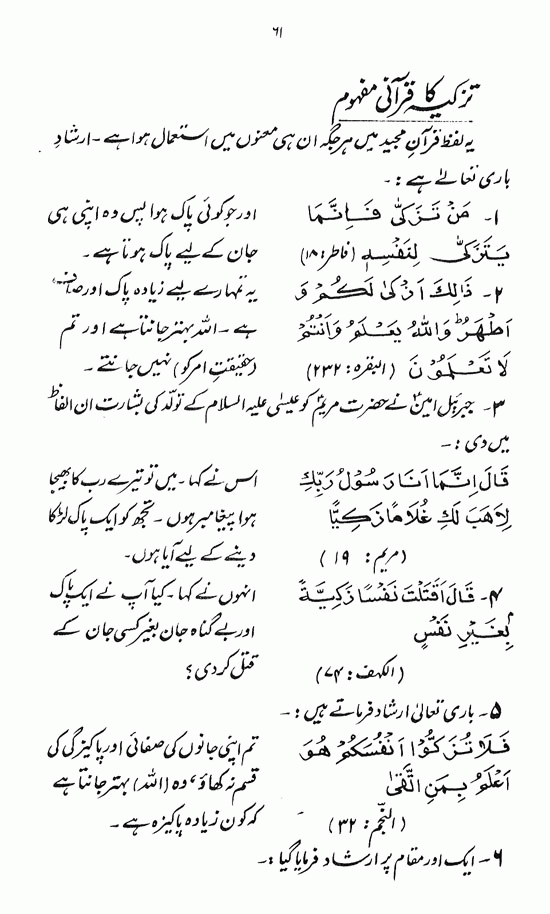 ۶۱
تزکیہ کا قرآنی مفہوم
یہ لفظ قرآن مجید میں ہر جگہ ان ہی معنوں میں استعمال ہوا ہے۔ ارشادِ
باری تعالےٰ ہے :۔
۱۔ مَنْ تَزَكّٰى فَاِنَّمَا
يَتَزَكّٰى لِنَفْسِهٖ (فاطر: ۱۸)
اور جو کوئی پاک ہوا بس وہ اپنی ہی
جان کے لیے پاک ہوتا ہے۔
۲۔ ذَالِكَ اَزْكٰى لَكُمْ وَ
اَطْهَرُ وَاللهُ يَعْلَمُ وَاَنْتُمْ
لَا تَعْلَمُوْنَ (البقرہ: ۲۳۲)
یہ تمہارے لیے زیادہ پاک اور صاف
ہے۔ اللہ بہتر جانتا ہے اور تم
(حقیقتِ امر کو) نہیں جانتے۔
۳۔ جبرئیل امینؑ نے حضرت مریمؑ کو عیسٰی علیہ السلام کے تولّد کی بشارت ان الفاظ
میں دی :۔
قَالَ اِنَّمَا اَنَا رَسُوْلُ رَبِّكِ
لِاَهَبَ لَكِ غُلَامًا زَكِيًّا
(مریم: ۱۹)
اس نے کہا۔ میں تو تیرے رب کا بھیجا
ہوا پیغامبر ہوں۔ تجھ کو ایک پاک لڑکا
دینے کے لیے آیا ہوں۔
۴۔ قَالَ اَقَتَلْتَ نَفْسًا زَكِيَّةً
بِغَيْرِ نَفْسٍ
(الکہف: ۷۴)
انہوں نے کہا۔ کیا آپ نے ایک پاک
اور بے گناہ جان بغیر کسی جان کے
قتل کر دی؟
۵۔ باری تعالیٰ ارشاد فرماتے ہیں :۔
فَلَا تُزَكُّوْا اَنْفُسَكُمْ هُوَ
اَعْلَمُ بِمَنِ اتَّقٰى
(النجم: ۳۲)
تم اپنی جانوں کی صفائی اور پاکیزگی کی
قسم نہ کھاؤ، وہ (اللہ) بہتر جانتا ہے
کہ کون زیادہ پاکیزہ ہے۔
۶۔ ایک اور مقام پر ارشاد فرمایا گیا :۔